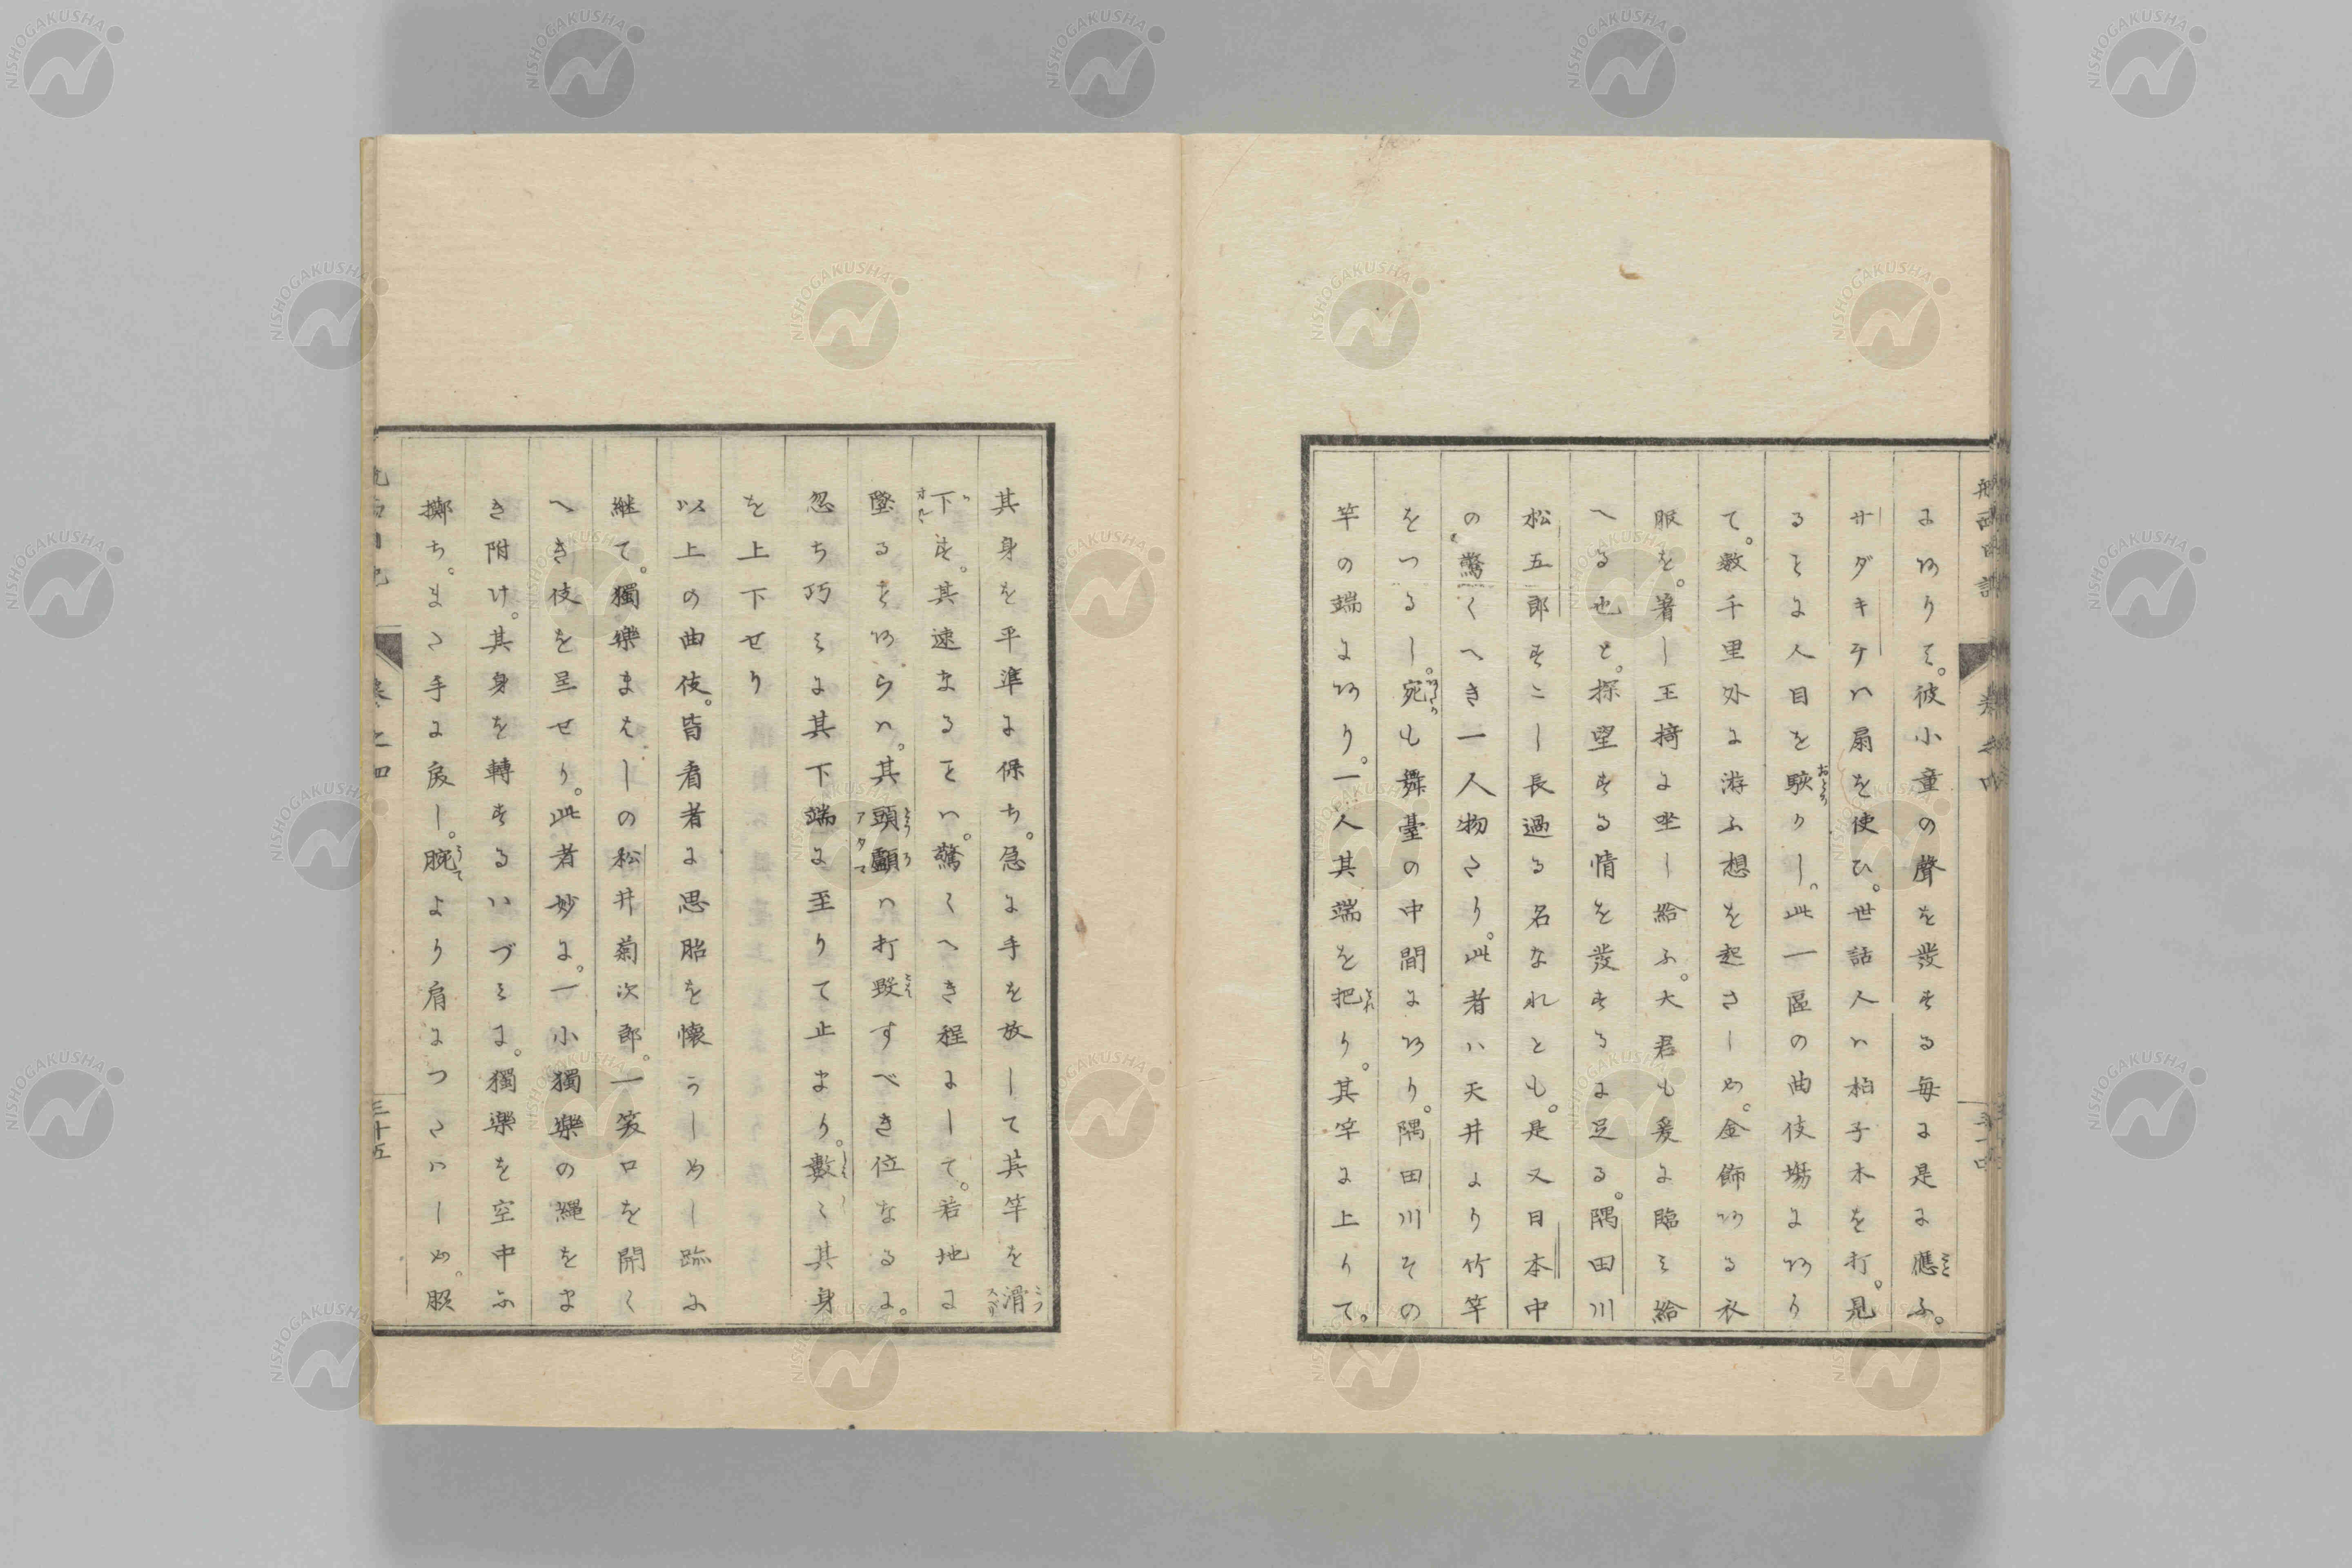 にありて。彼小童の聲を發する毎に是に應ふ。
サダキチハ扇を使ひ。世話人ハ柏子木を打。見
るとに人目を駭かし。此一區の曲伎場にあり
て。數千里外に游ふ想を起さしめ。金飾ある衣
服を。著し王椅に坐し給ふ。大君も爰に臨み給
へる也と。探望する情を發するに足る。隅田川
松五郎すこし長過る名なれとも。是又日本中
の驚くへき一人物さり。此者ハ天井より竹竿
をつるし。宛も舞臺の中間にあり。隅田川その
竿の端にあり。一人其端を把り。其竿に上りて。
其身を平準に保ち。急に手を放して其竿を滑
下す。其速なることハ。驚くへき程にして。若地に
墜るをあらハ。其頭顱ハ打毀すべき位なるに。
忽ち巧みに其下端に至りて止まり。數〻其身
を上下せり
以上の曲伎。皆看者に思胎を懐うしめし跡に
継て。獨樂まはしの松井菊次郎。一笑口を開く
へき伎を呈せり。此者妙に。一小獨樂の縄をま
き附け。其身を轉するいづミに。獨樂を空中に
擲ち。まさ手に戻し。腕より肩につさハしめ。服
卷之四
三十五
NISHOGAKUSHA